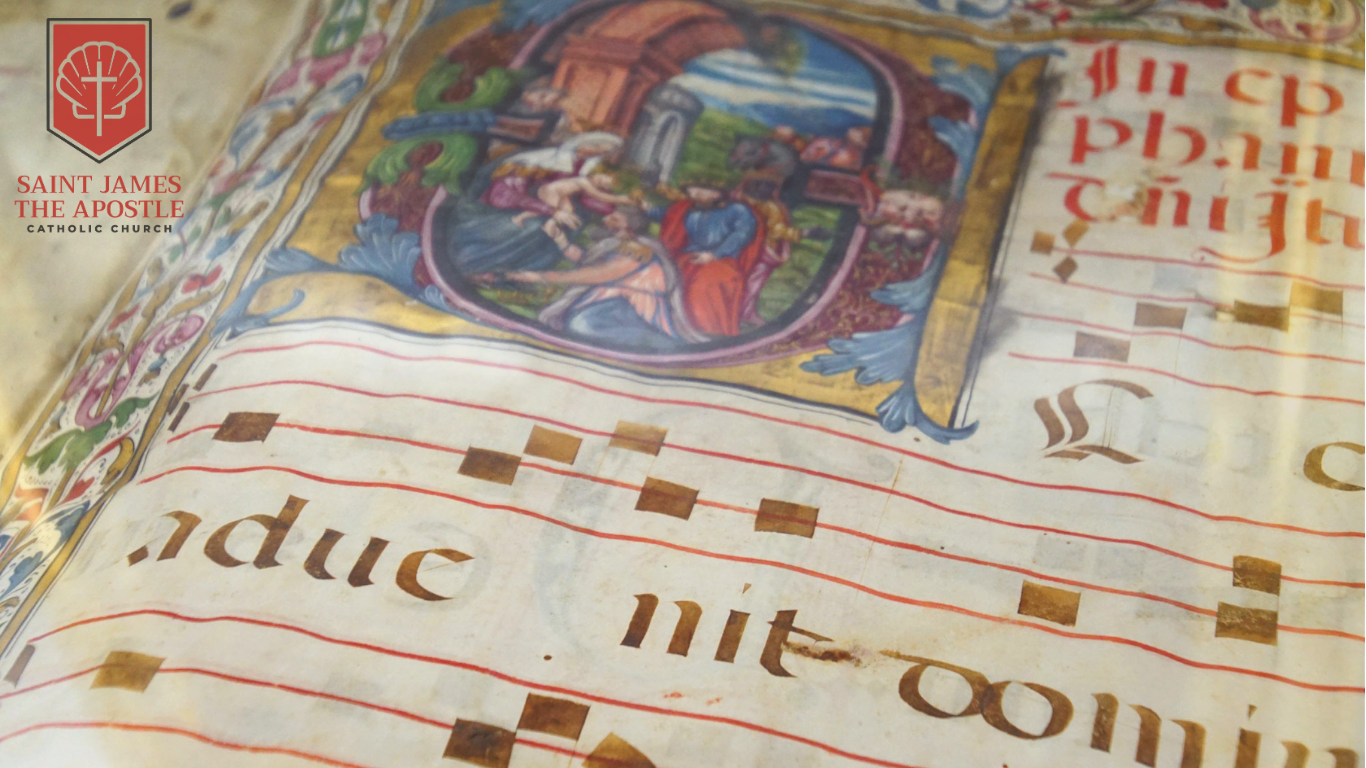 SAINT JAMES
THE APOSTLE
CATHOLIC CHURCH
In ep
phani
Dñi
C c
adue nit domin